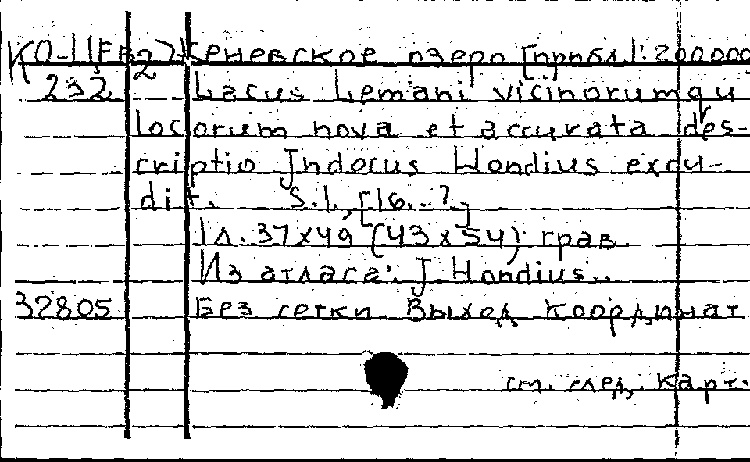 КО-1(ЕВ2) Женевское озеро [прибл 1:200000
232 Lacus Lemani vicinorumqu
locorum nova et accurata des-
criptio Jndocus Hondius excu-
dit. S.l., [16..?]
1 л. 37x49 (43x54) грав.
Из атласа: J. Hondius..
32805 Без сетки Выход координат
см. след. карт.